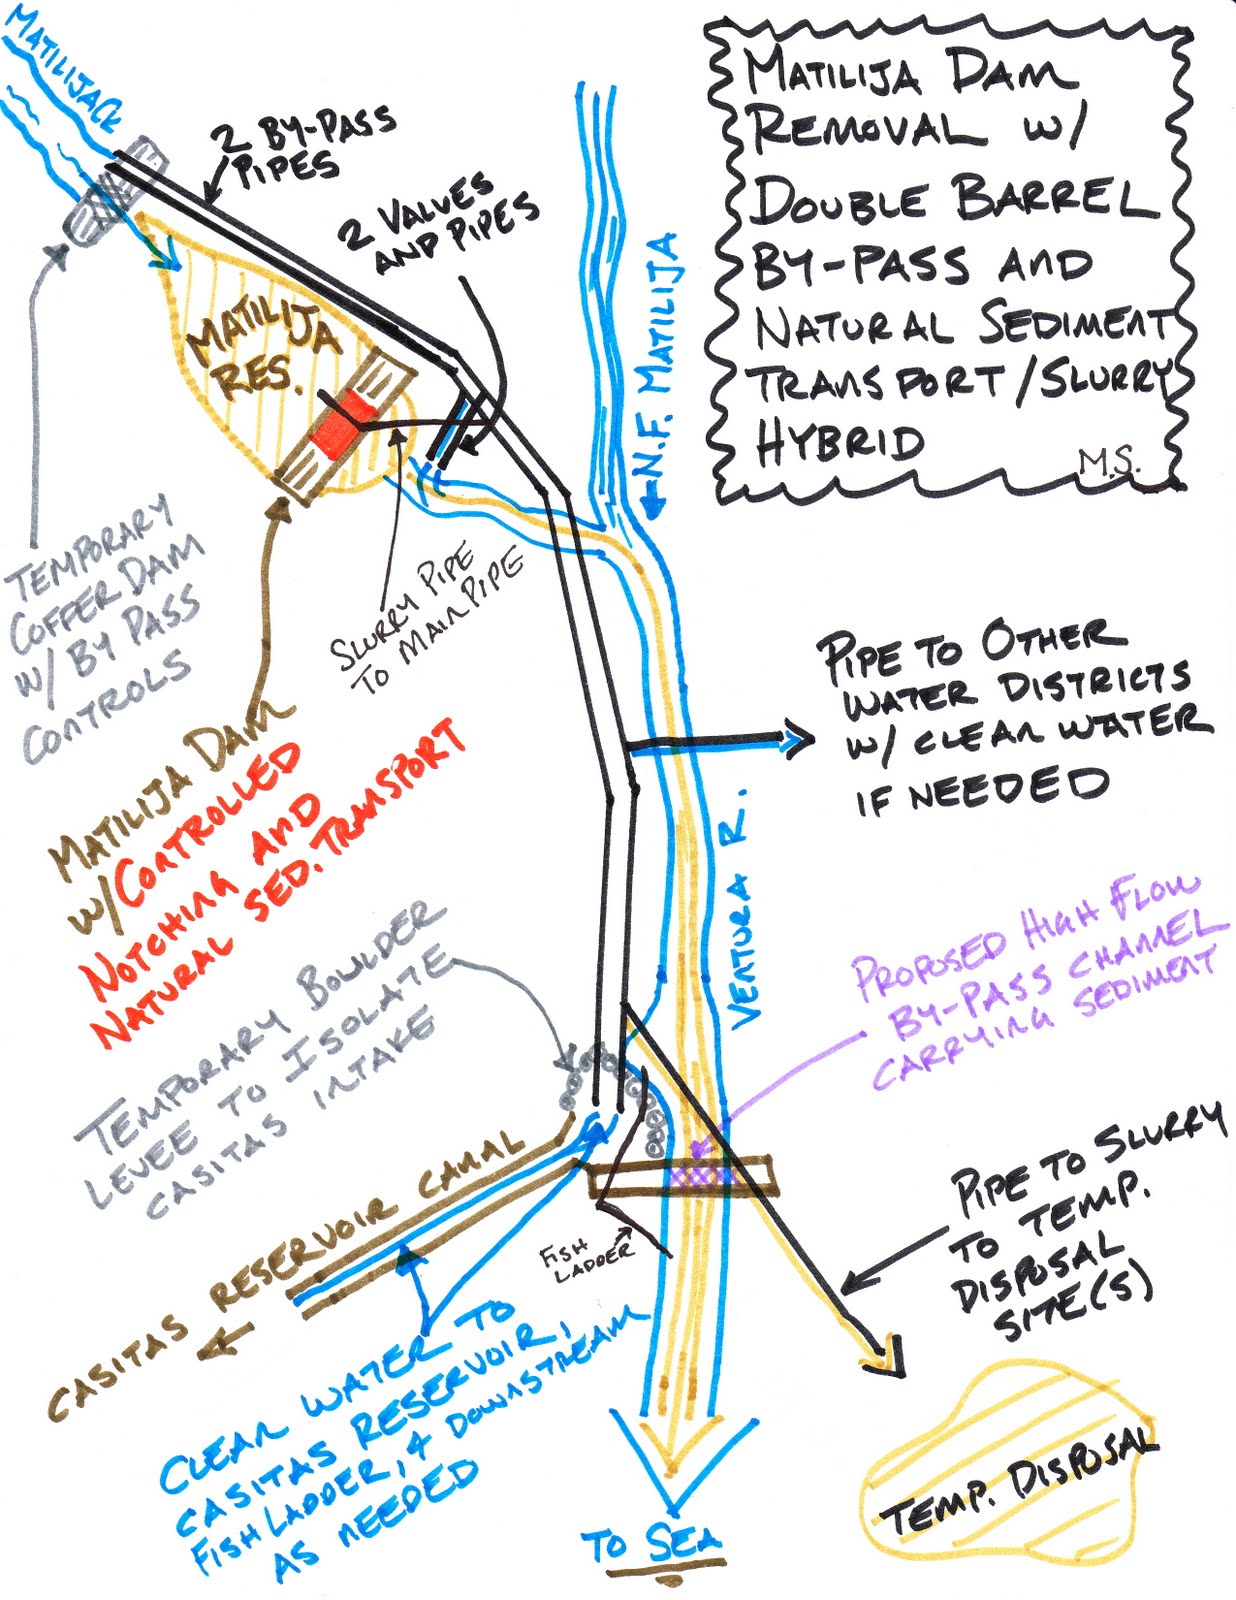 MATILIJA CK
2 BY-PASS
PIPES
2 VALVES
AND PIPES
MATILIJA DAM
REMOVAL W/
DOUBLE BARREL
BY-PASS AND
NATURAL SEDIMENT
TRANSPORT/SLURRY
HYBRID
M.S.
MATILIJA
RES.
N.F. MATILIJA
TEMPORARY
COFFER DAM
W/ BY PASS
CONTROLS
SLURRY PIPE
TO MAIN PIPE
PIPE TO OTHER
WATER DISTRICTS
W/ CLEAN WATER
IF NEEDED
MATILIJA DAM
W/CONTROLLED
NOTCHING AND
NATURAL SED. TRANSPORT
VENTURA R.
PROPOSED HIGH FLOW
BY-PASS CHANNEL
CARRYING SEDIMENT
TEMPORARY BOULDER
LEVEE TO ISOLATE
CASITAS INTAKE
CASITAS RESERVOIR CANAL
FISH
LADDER
PIPE TO SLURRY
TO TEMP.
DISPOSAL
SITE(S)
CLEAN WATER TO
CASITAS RESERVOIR,
FISH LADDER, & DOWNSTREAM
AS NEEDED
TEMP. DISPOSAL
TO SEA